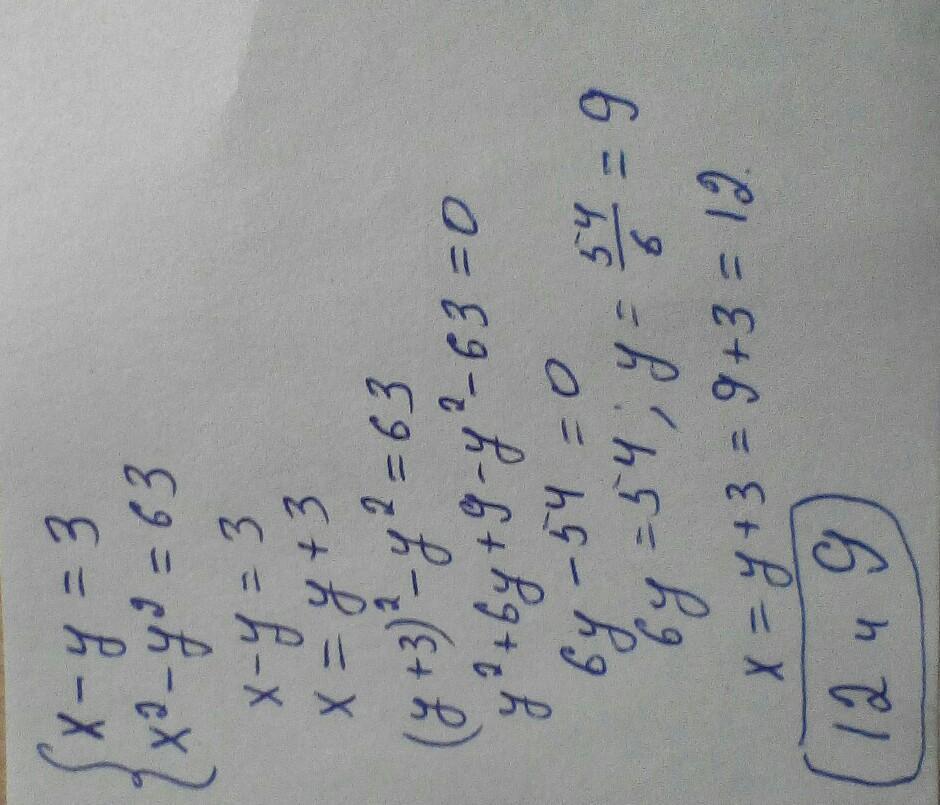 { x - y = 3
x² - y² = 63
x - y = 3
x = y + 3
(y + 3)² - y² = 63
y² + 6y + 9 - y² - 63 = 0
6y - 54 = 0
6y = 54; y = 54/6 = 9
x = y + 3 = 9 + 3 = 12.
12 и 9